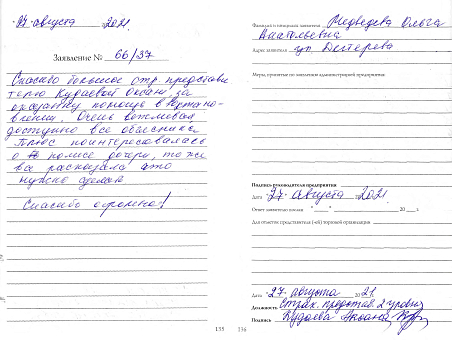 27 августа 2021.
Заявление № 66/37
Спасибо большое стр. представи
телю Кудаевой Оксане за
оказанную помощь в восстано-
влении. Очень вежливая
доступно все объяснила
Плюс поинтересовалась
о полисе дочери, тоже
все рассказала что
нужно сделать
Спасибо огромное!
155
Фамилия и инициалы заявителя Медведева Ольга
Анатольевна
Адрес заявителя ул
Меры, принятые по заявлению администрацией предприятия:
Подпись руководителя предприятия
Дата 27 августа 2021.
Ответ заявителю послан "____" ________ 20___ г.
Для отметок представителя (-ей) торговой организации
Дата 27 августа 2021
Должность Страх. представ. 2 уровня
Подпись Кудаева Оксана
156